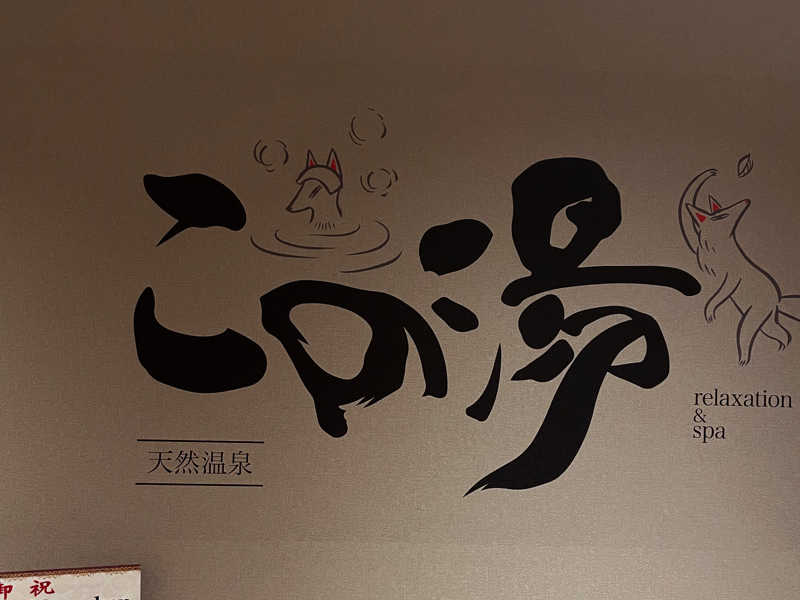 この湯
天然温泉
relaxation
&
spa
御祝